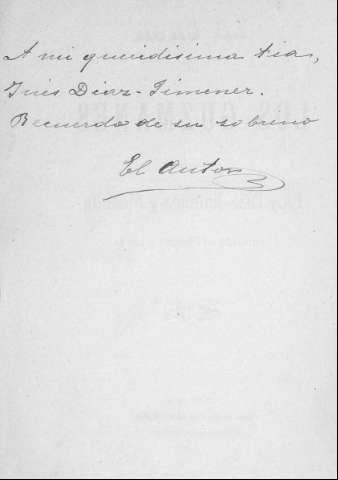 A mi queridisima tia,
Inés Diaz-Jimenez.
Recuerdo de su sobrino
El Autor